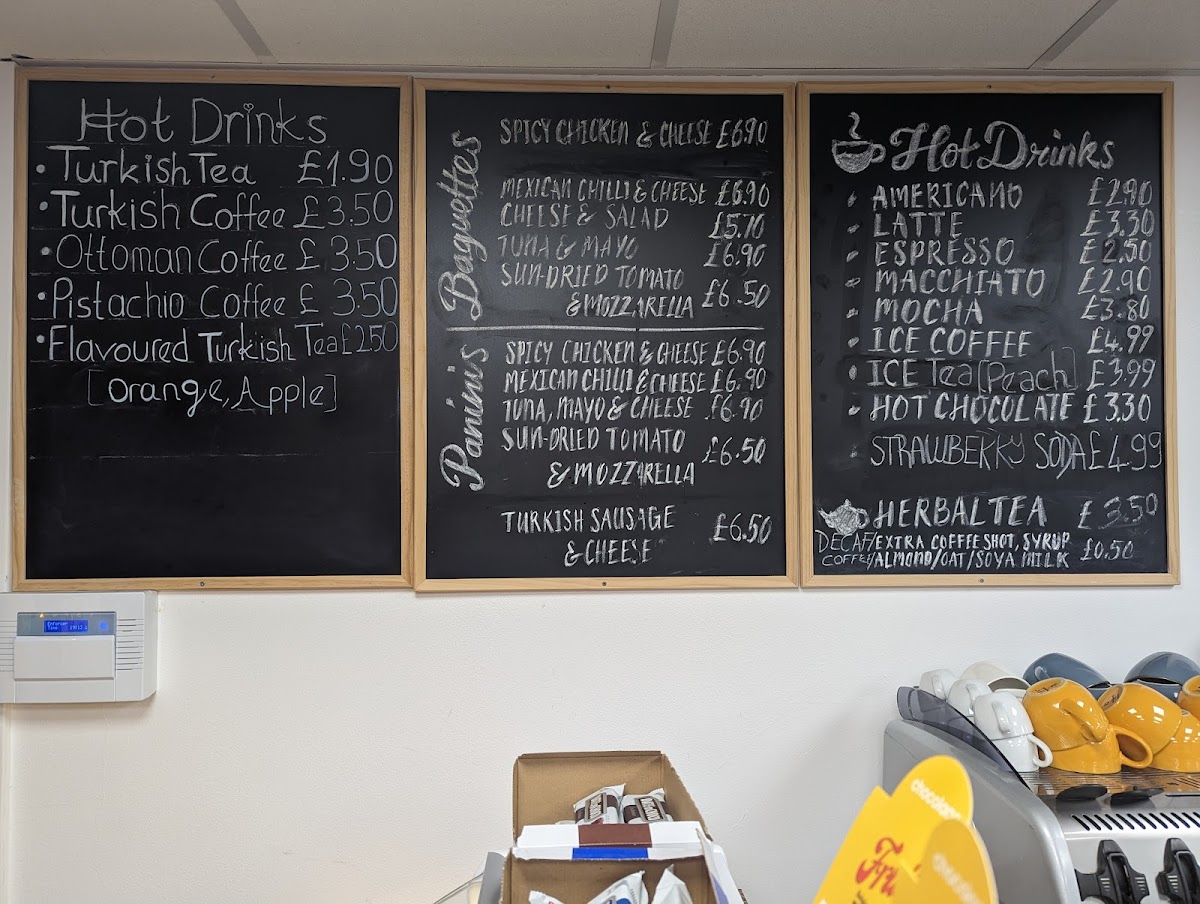 Hot Drinks
• Turkish Tea £1.90
• Turkish Coffee £3.50
• Ottoman Coffee £3.50
• Pistachio Coffee £3.50
• Flavoured Turkish Tea £2.50
[Orange, Apple]
Baguettes
SPICY CHICKEN & CHEESE £6.90
MEXICAN CHILLI & CHEESE £6.90
CHEESE & SALAD £5.70
TUNA & MAYO £6.90
SUN-DRIED TOMATO
& MOZZARELLA £6.50
Panini's
SPICY CHICKEN & CHEESE £6.90
MEXICAN CHILLI & CHEESE £6.90
TUNA, MAYO & CHEESE £6.90
SUN-DRIED TOMATO £6.50
& MOZZARELLA
TURKISH SAUSAGE £6.50
& CHEESE
Hot Drinks
AMERICANO £2.90
LATTE £3.30
ESPRESSO £2.50
MACCHIATO £2.90
MOCHA £3.80
ICE COFFEE £4.99
ICE Tea [Peach] £3.99
HOT CHOCOLATE £3.30
STRAWBERRY SODA £4.99
HERBAL TEA £3.50
DECAF/EXTRA COFFEE SHOT, SYRUP £0.50
COFFEE/ALMOND/OAT/SOYA MILK